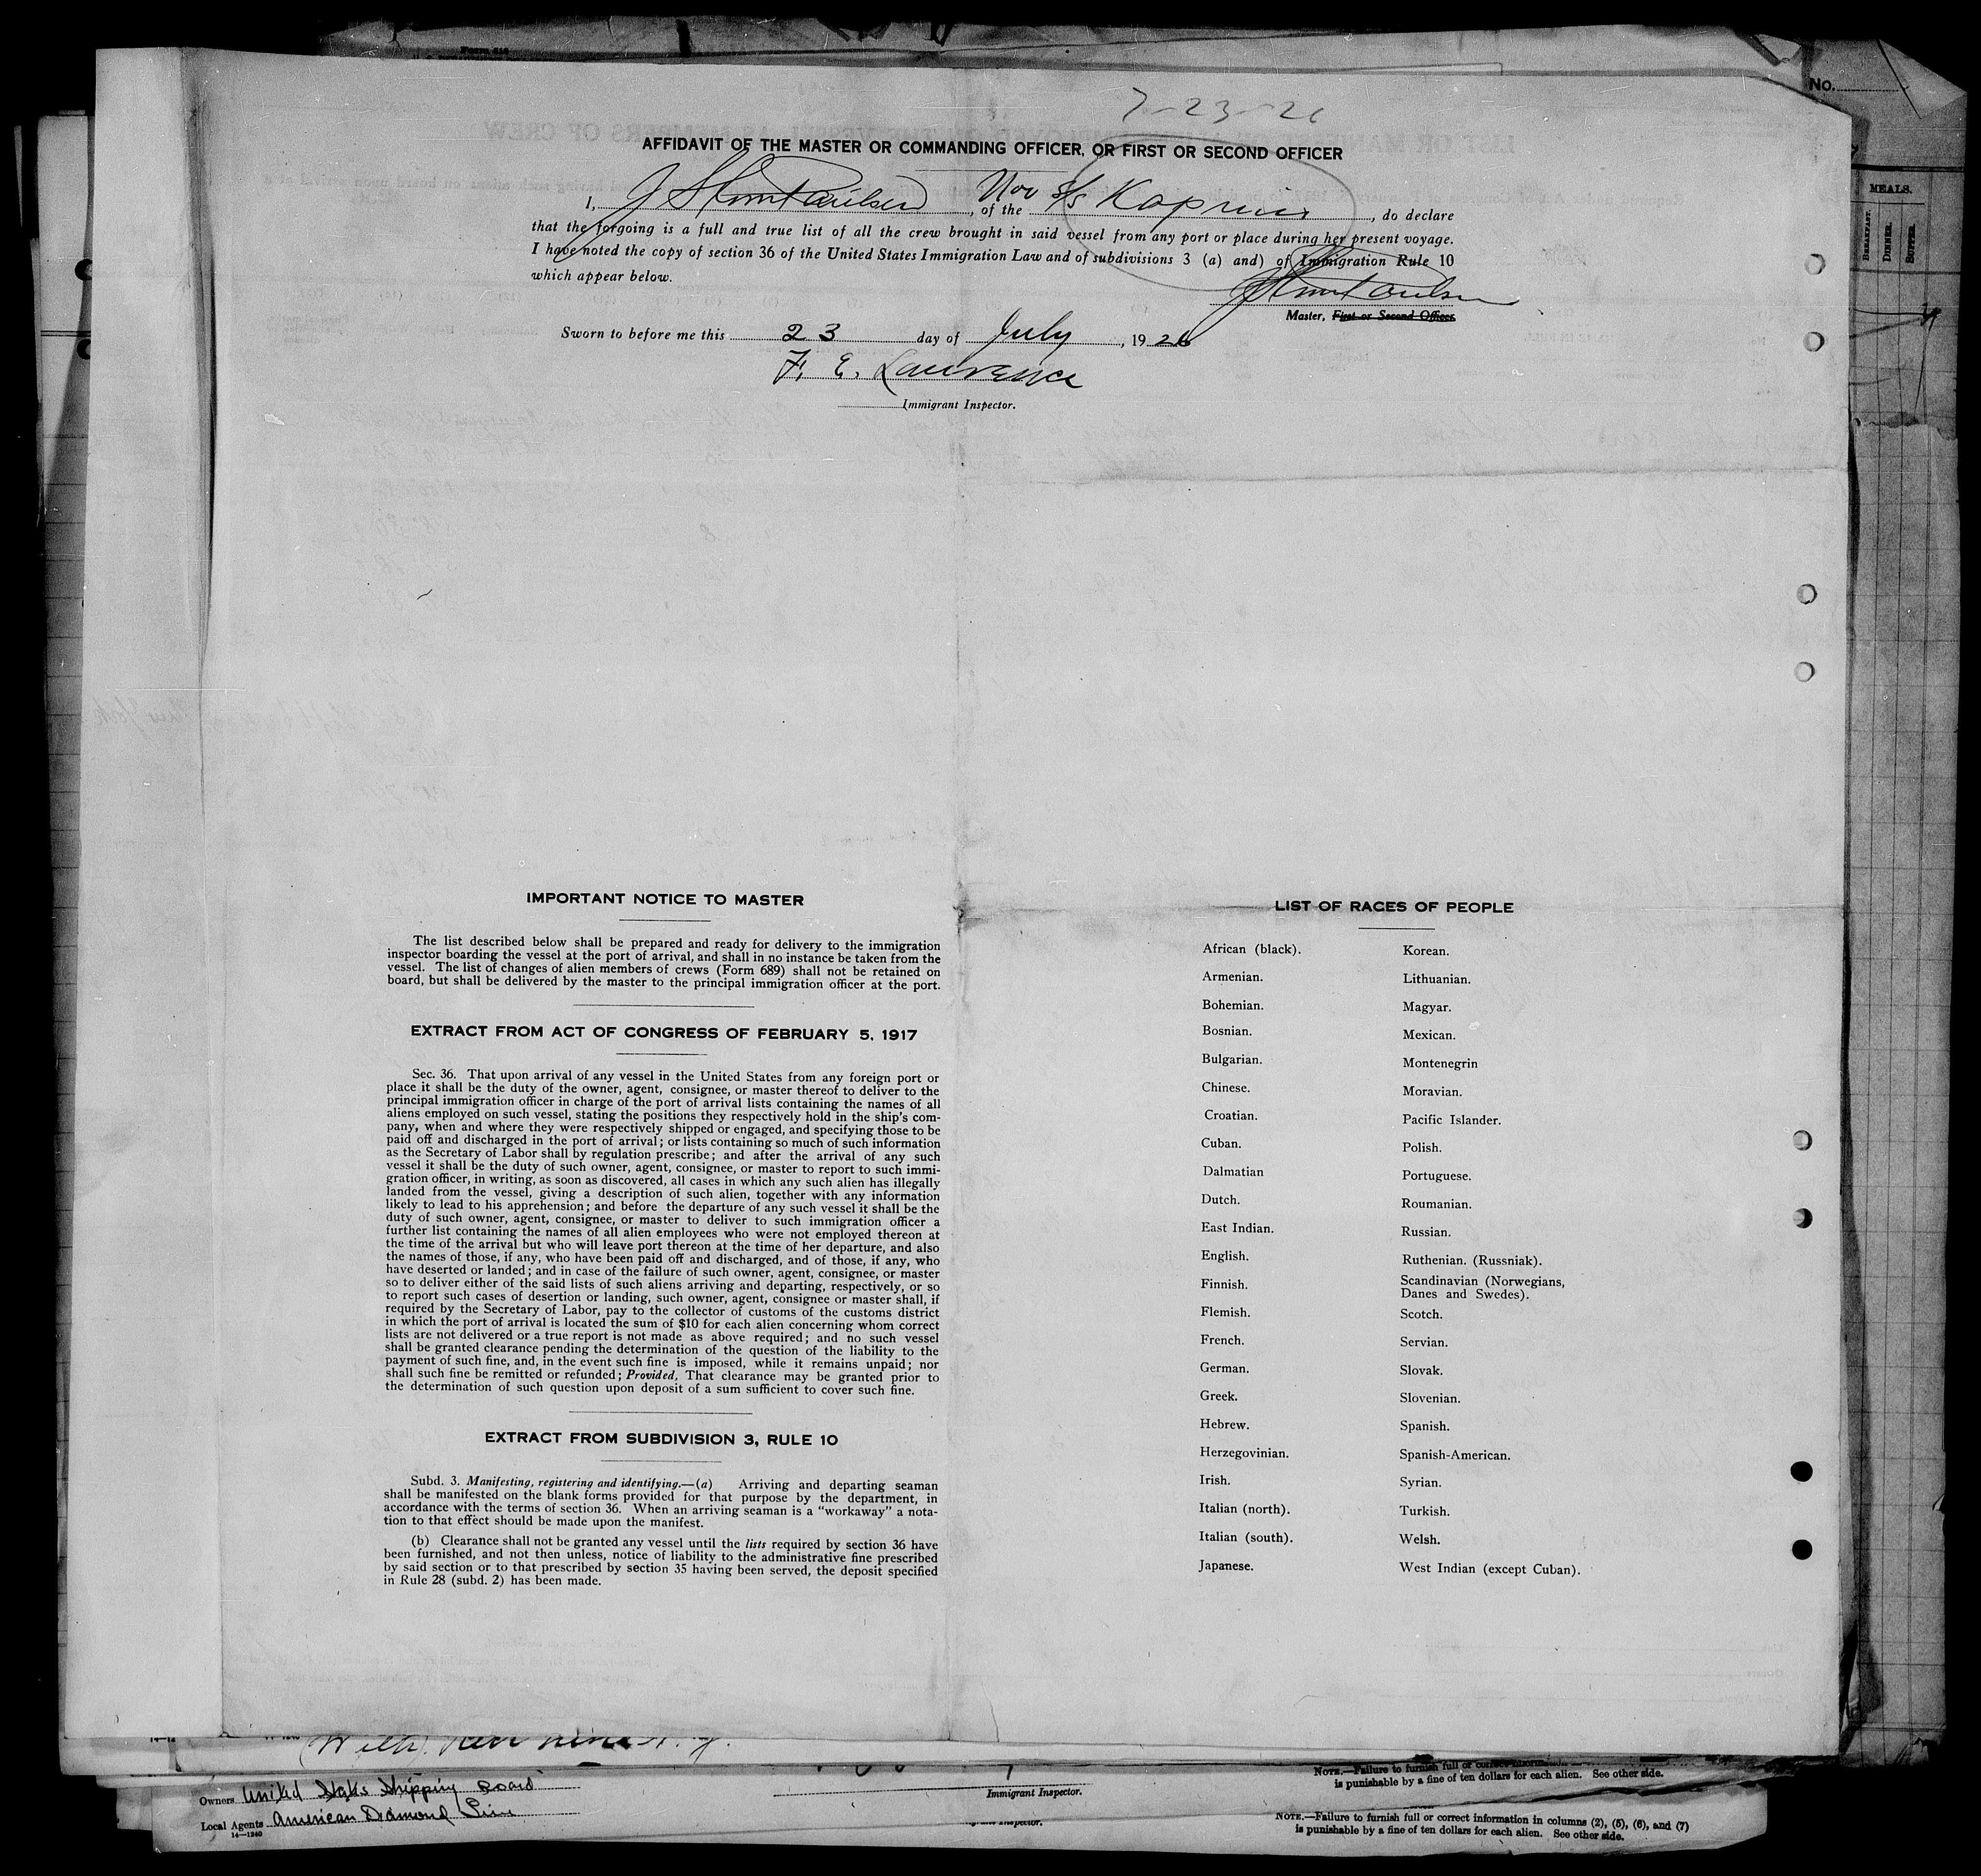 No.
7-23-26
AFFIDAVIT OF THE MASTER OR COMMANDING OFFICER, OR FIRST OR SECOND OFFICER
I, J Paulsen, of the Nor S/S Kaprino, do declare
that the forgoing is a full and true list of all the crew brought in said vessel from any port or place during her present voyage.
I have noted the copy of section 36 of the United States Immigration Law and of subdivisions 3 (a) and) of Immigration Rule 10
which appear below.
Master, First or Second Officer.
Sworn to before me this 23 day of July, 1926
F. E. Lawrence
Immigrant Inspector.
MEALS.
BREAKFAST.
DINNER.
SUPPER.
IMPORTANT NOTICE TO MASTER
The list described below shall be prepared and ready for delivery to the immigration
inspector boarding the vessel at the port of arrival, and shall in no instance be taken from the
vessel. The list of changes of alien members of crews (Form 689) shall not be retained on
board, but shall be delivered by the master to the principal immigration officer at the port.
EXTRACT FROM ACT OF CONGRESS OF FEBRUARY 5, 1917
Sec. 36. That upon arrival of any vessel in the United States from any foreign port or
place it shall be the duty of the owner, agent, consignee, or master thereof to deliver to the
principal immigration officer in charge of the port of arrival lists containing the names of all
aliens employed on such vessel, stating the positions they respectively hold in the ship's com-
pany, when and where they were respectively shipped or engaged, and specifying those to be
paid off and discharged in the port of arrival; or lists containing so much of such information
as the Secretary of Labor shall by regulation prescribe; and after the arrival of any such
vessel it shall be the duty of such owner, agent, consignee, or master to report to such immi-
gration officer, in writing, as soon as discovered, all cases in which any such alien has illegally
landed from the vessel, giving a description of such alien, together with any information
likely to lead to his apprehension; and before the departure of any such vessel it shall be the
duty of such owner, agent, consignee, or master to deliver to such immigration officer a
further list containing the names of all alien employees who were not employed thereon at
the time of the arrival but who will leave port thereon at the time of her departure, and also
the names of those, if any, who have been paid off and discharged, and of those, if any, who
have deserted or landed; and in case of the failure of such owner, agent, consignee, or master
so to deliver either of the said lists of such aliens arriving and departing, respectively, or so
to report such cases of desertion or landing, such owner, agent, consignee or master shall, if
required by the Secretary of Labor, pay to the collector of customs of the customs district
in which the port of arrival is located the sum of $10 for each alien concerning whom correct
lists are not delivered or a true report is not made as above required; and no such vessel
shall be granted clearance pending the determination of the question of the liability to the
payment of such fine, and, in the event such fine is imposed, while it remains unpaid; nor
shall such fine be remitted or refunded; Provided, That clearance may be granted prior to
the determination of such question upon deposit of a sum sufficient to cover such fine.
EXTRACT FROM SUBDIVISION 3, RULE 10
Subd. 3. Manifesting, registering and identifying.—(a) Arriving and departing seaman
shall be manifested on the blank forms provided for that purpose by the department, in
accordance with the terms of section 36. When an arriving seaman is a "workaway" a nota-
tion to that effect should be made upon the manifest.
(b) Clearance shall not be granted any vessel until the lists required by section 36 have
been furnished, and not then unless, notice of liability to the administrative fine prescribed
by said section or to that prescribed by section 35 having been served, the deposit specified
in Rule 28 (subd. 2) has been made.
LIST OF RACES OF PEOPLE
African (black). Korean.
Armenian. Lithuanian.
Bohemian. Magyar.
Bosnian. Mexican.
Bulgarian. Montenegrin
Chinese. Moravian.
Croatian. Pacific Islander.
Cuban. Polish.
Dalmatian Portuguese.
Dutch. Roumanian.
East Indian. Russian.
English. Ruthenian. (Russniak).
Finnish. Scandinavian (Norwegians,
Danes and Swedes).
Flemish. Scotch.
French. Servian.
German. Slovak.
Greek. Slovenian.
Hebrew. Spanish.
Herzegovinian. Spanish-American.
Irish. Syrian.
Italian (north). Turkish.
Italian (south). Welsh.
Japanese. West Indian (except Cuban).
Owners United States Shipping Board
Local Agents American Diamond Line
14—1240
Immigrant Inspector.
NOTE.—Failure to furnish full or correct information
is punishable by a fine of ten dollars for each alien. See other side.
NOTE.—Failure to furnish full or correct information in columns (2), (5), (6), and (7)
is punishable by a fine of ten dollars for each alien. See other side.